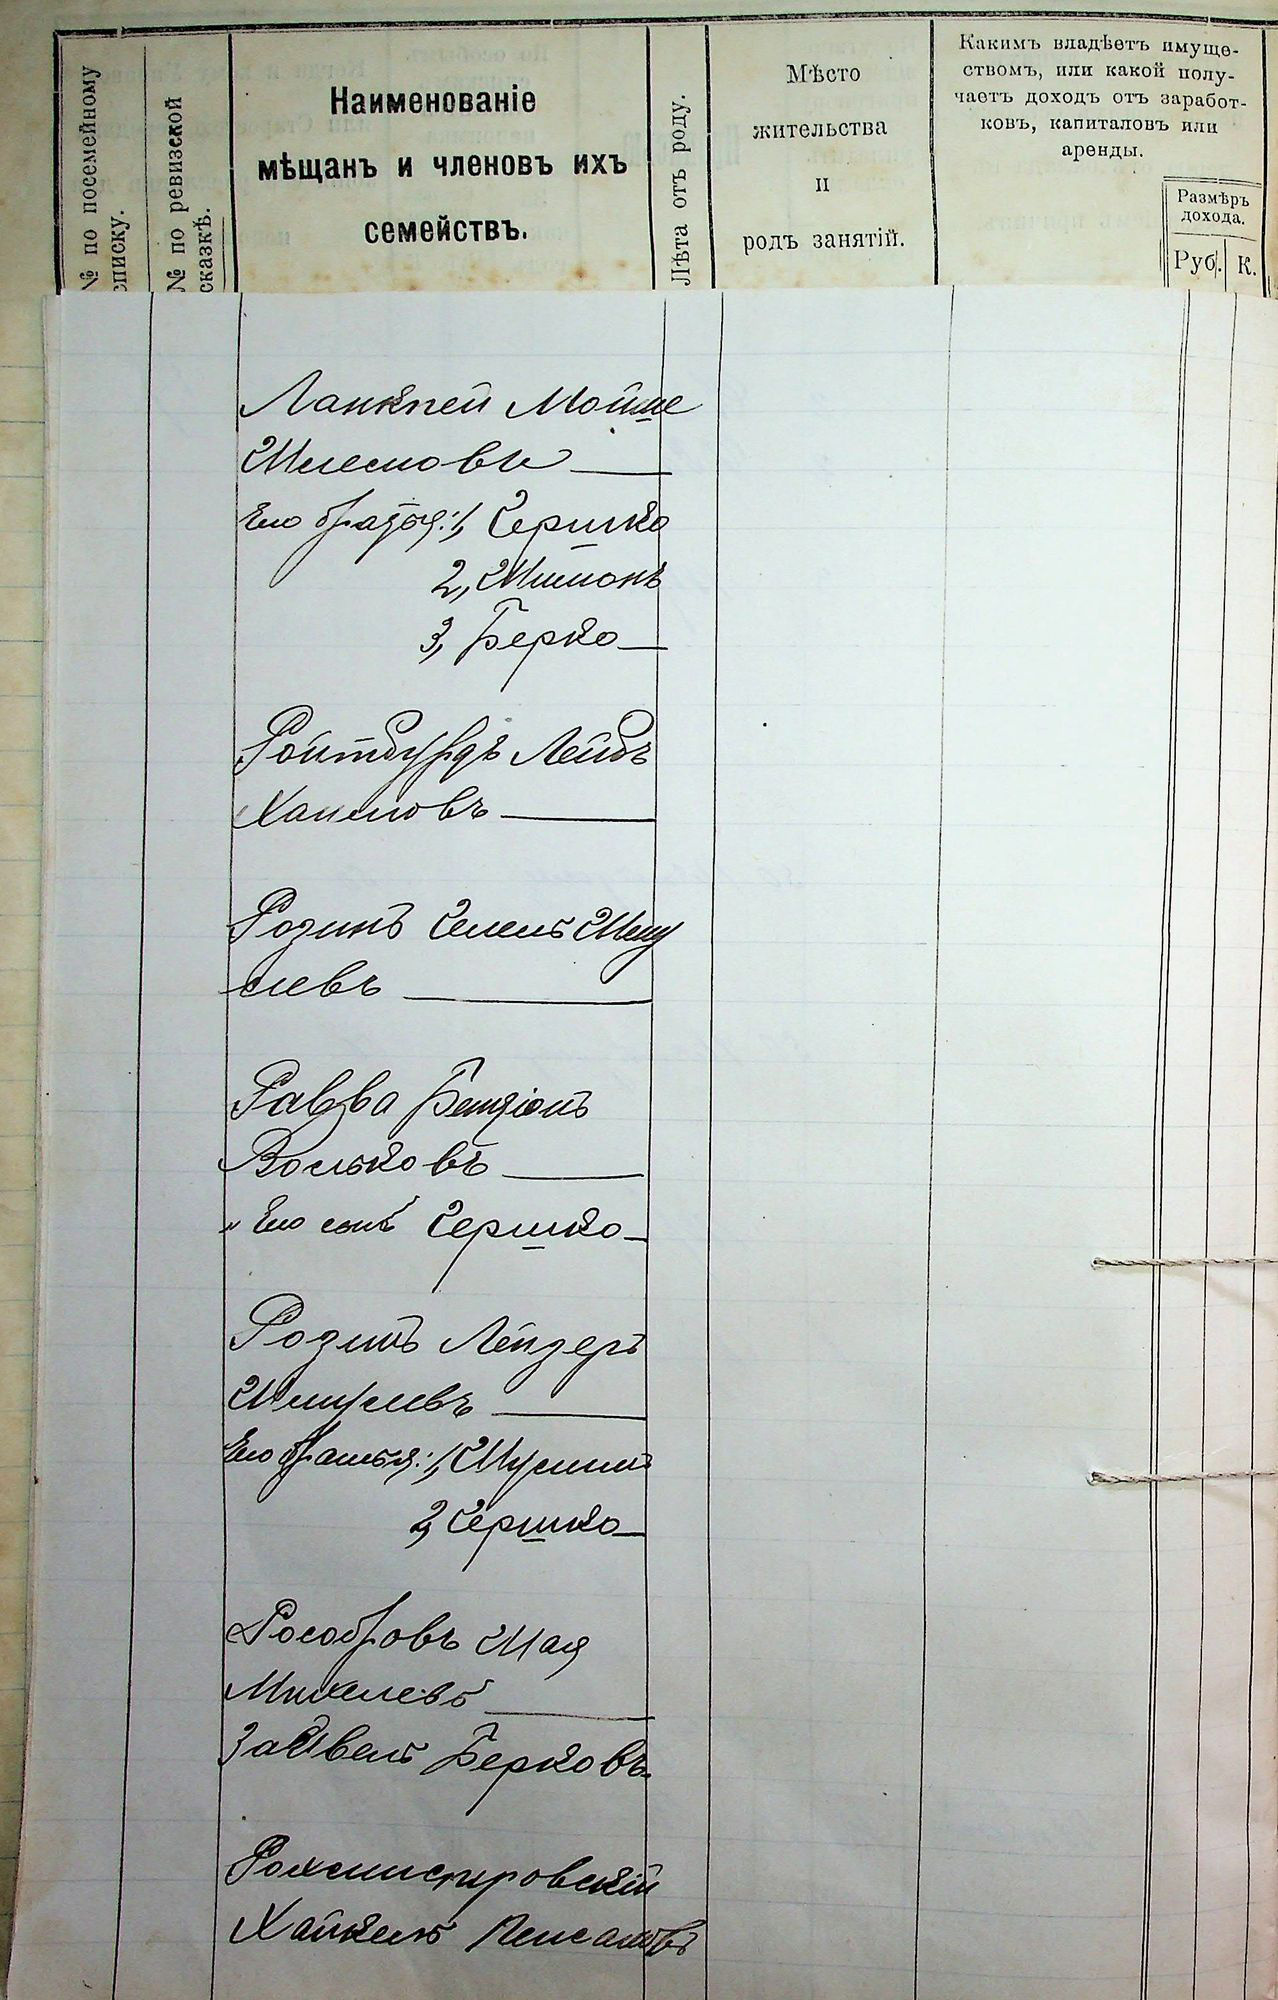 № по посемейному
списку.
№ по ревизской
сказкѣ.
Наименованіе
мѣщанъ и членовъ ихъ
семействъ.
Лѣта отъ роду.
Мѣсто
жительства
и
родъ занятій.
Какимъ владѣетъ имуще-
ствомъ, или какой полу-
чаетъ доходъ отъ заработ-
ковъ, капиталовъ или
аренды.
Размѣръ
дохода.
Руб. К.
Мойше
Шлемовъ
Его братья: 1, Гершко
2, Шимонъ
3, Берко
Ройтбурдъ Лейбъ
Хаимовъ
Розинъ
Рабва Бенціонъ
Вольковъ
" Его сынъ Гершко
Розинъ Лейзеръ
Шмулевъ
Его братья: 1,
2, Гершко
Рособровъ Шая
Михелевъ
Берковъ
Хайкель